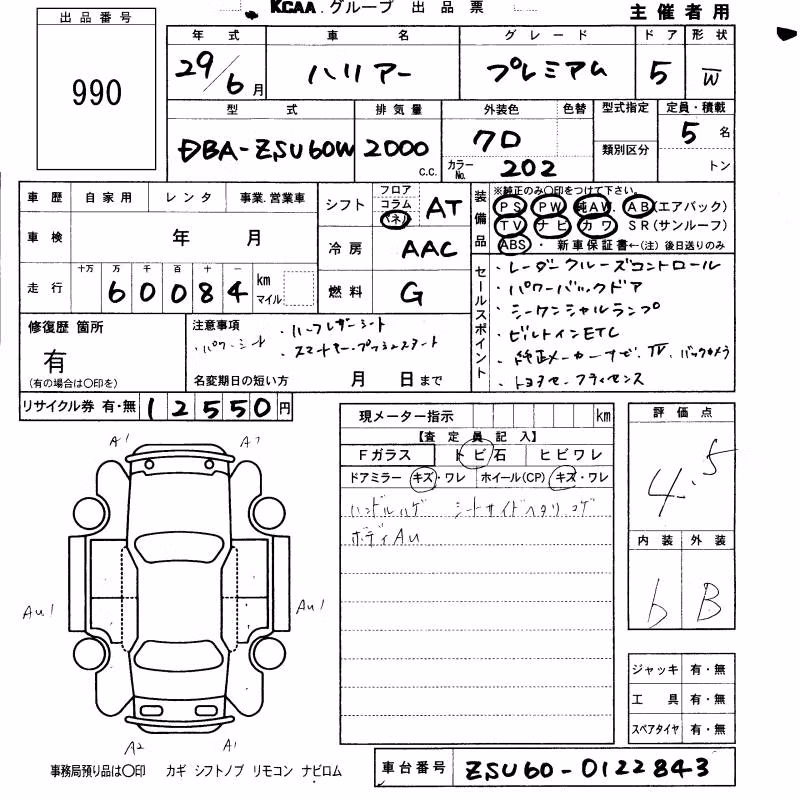 KCAA.グループ 出品票
主催者用
出品番号
990
年式 車名 グレード ドア 形状
29/6月 ハリアー プレミアム 5 W
型式 排気量 外装色 色替 型式指定 定員・積載
DBA-ZSU60W 2000 c.c. クロ 類別区分 5名
カラーNo. 202 トン
車歴 自家用 レンタ 事業.営業車
車検 年 月
走行 十万 万 千 百 十 一
60084 km マイル
シフト フロア コラム パネル AT
冷房 AAC
燃料 G
装備品
※純正のみ〇印をつけて下さい。
PS PW 純AW. AB(エアバック)
TV ナビ カワ SR(サンルーフ)
ABS ・ 新車保証書←(注) 後日送りのみ
セールスポイント
・レーダークルーズコントロール
・パワーバックドア
・シーケンシャルランプ
・ビルトインETC
・純正メーカーナビ.TV.バックカメラ
・トヨタセーフティセンス
修復歴 箇所
有
(有の場合は〇印を)
注意事項 ・ハーフレザーシート
・パワーシート ・スマートキー・プッシュスタート
名変期日の短い方 月 日まで
リサイクル券 有・無 12550円
現メーター指示 km
【査定員記入】
Fガラス トビ石 ヒビワレ
ドアミラー キズ・ワレ ホイール(CP) キズ・ワレ
ハンドルハゲ シートサイドヘタリ.コゲ
ボディAu
評価点
4.5
内装 外装
b B
A1 A1
Au1 Au1
A2 A1
ジャッキ 有・無
工具 有・無
スペアタイヤ 有・無
事務局預り品は〇印 カギ シフトノブ リモコン ナビロム
車台番号 ZSU60-0122843